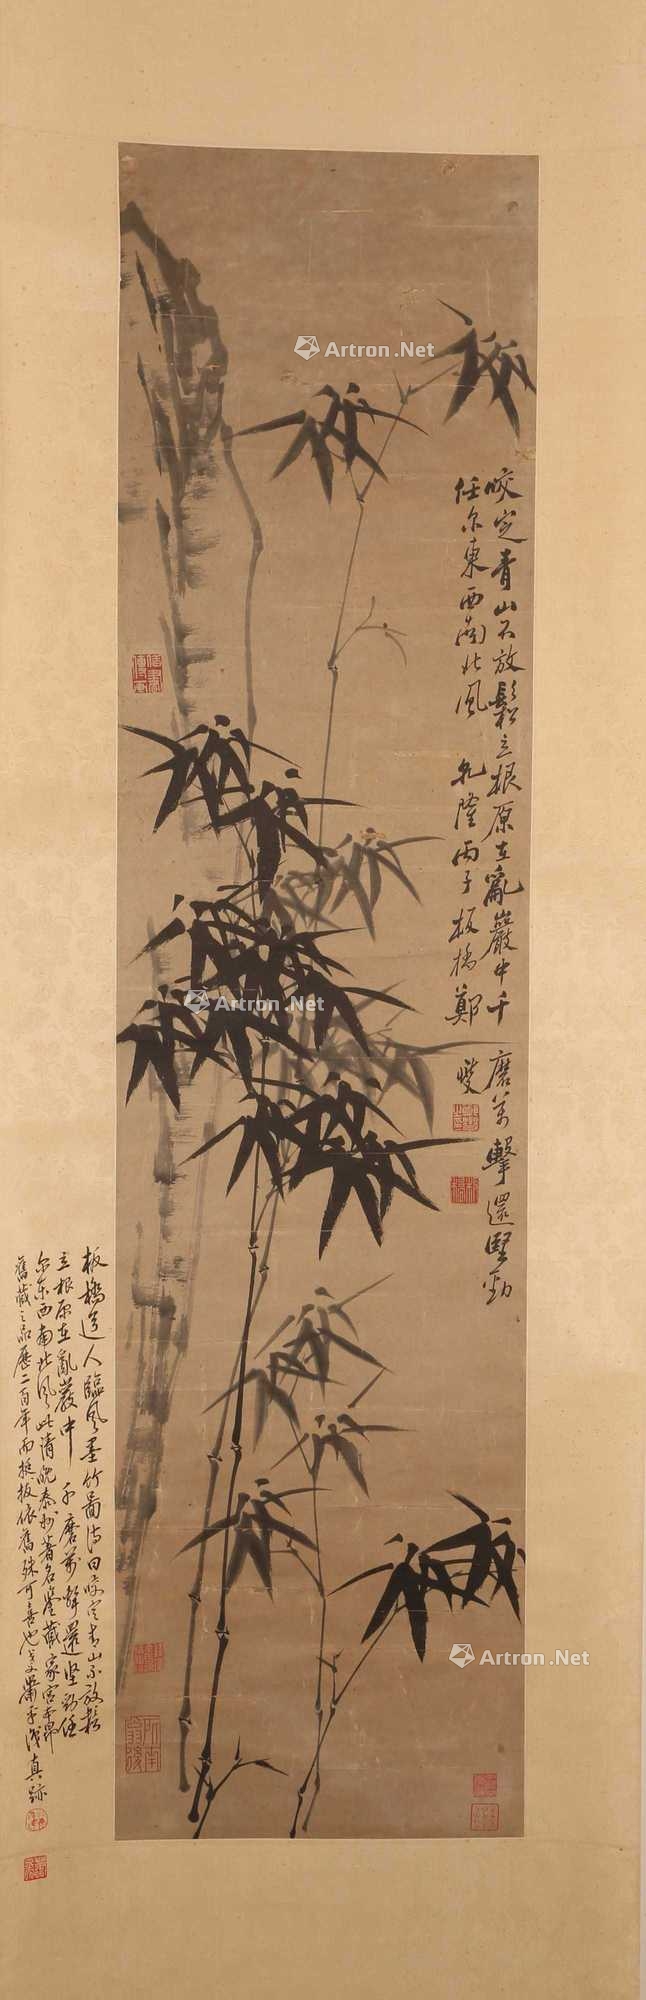 咬定青山不放鬆立根原在亂巖中千磨萬擊還堅勁
任尔東西南北風 乾隆丙子板橋鄭燮
板橋道人臨風墨竹圖詩曰咬定青山不放鬆
立根原在亂巖中千磨萬擊還坚勁任
尔东西南北風此清晚泰州著名鉴藏家宫本昂
舊藏之品歷二百年而挺拔依舊殊可喜也戈蕭平識真跡
所南翁後
Artron.Net
Artron.Net
Artron.Net